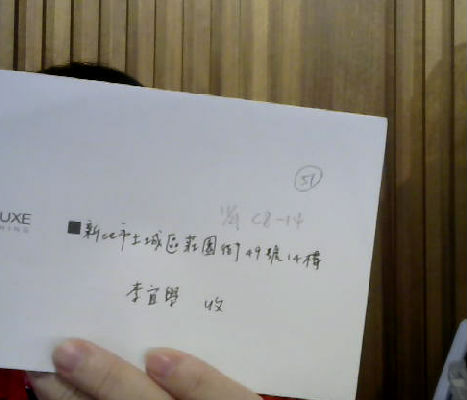 51
C8-14
UXE
新北市土城區莊園街49號14樓
李宜
收